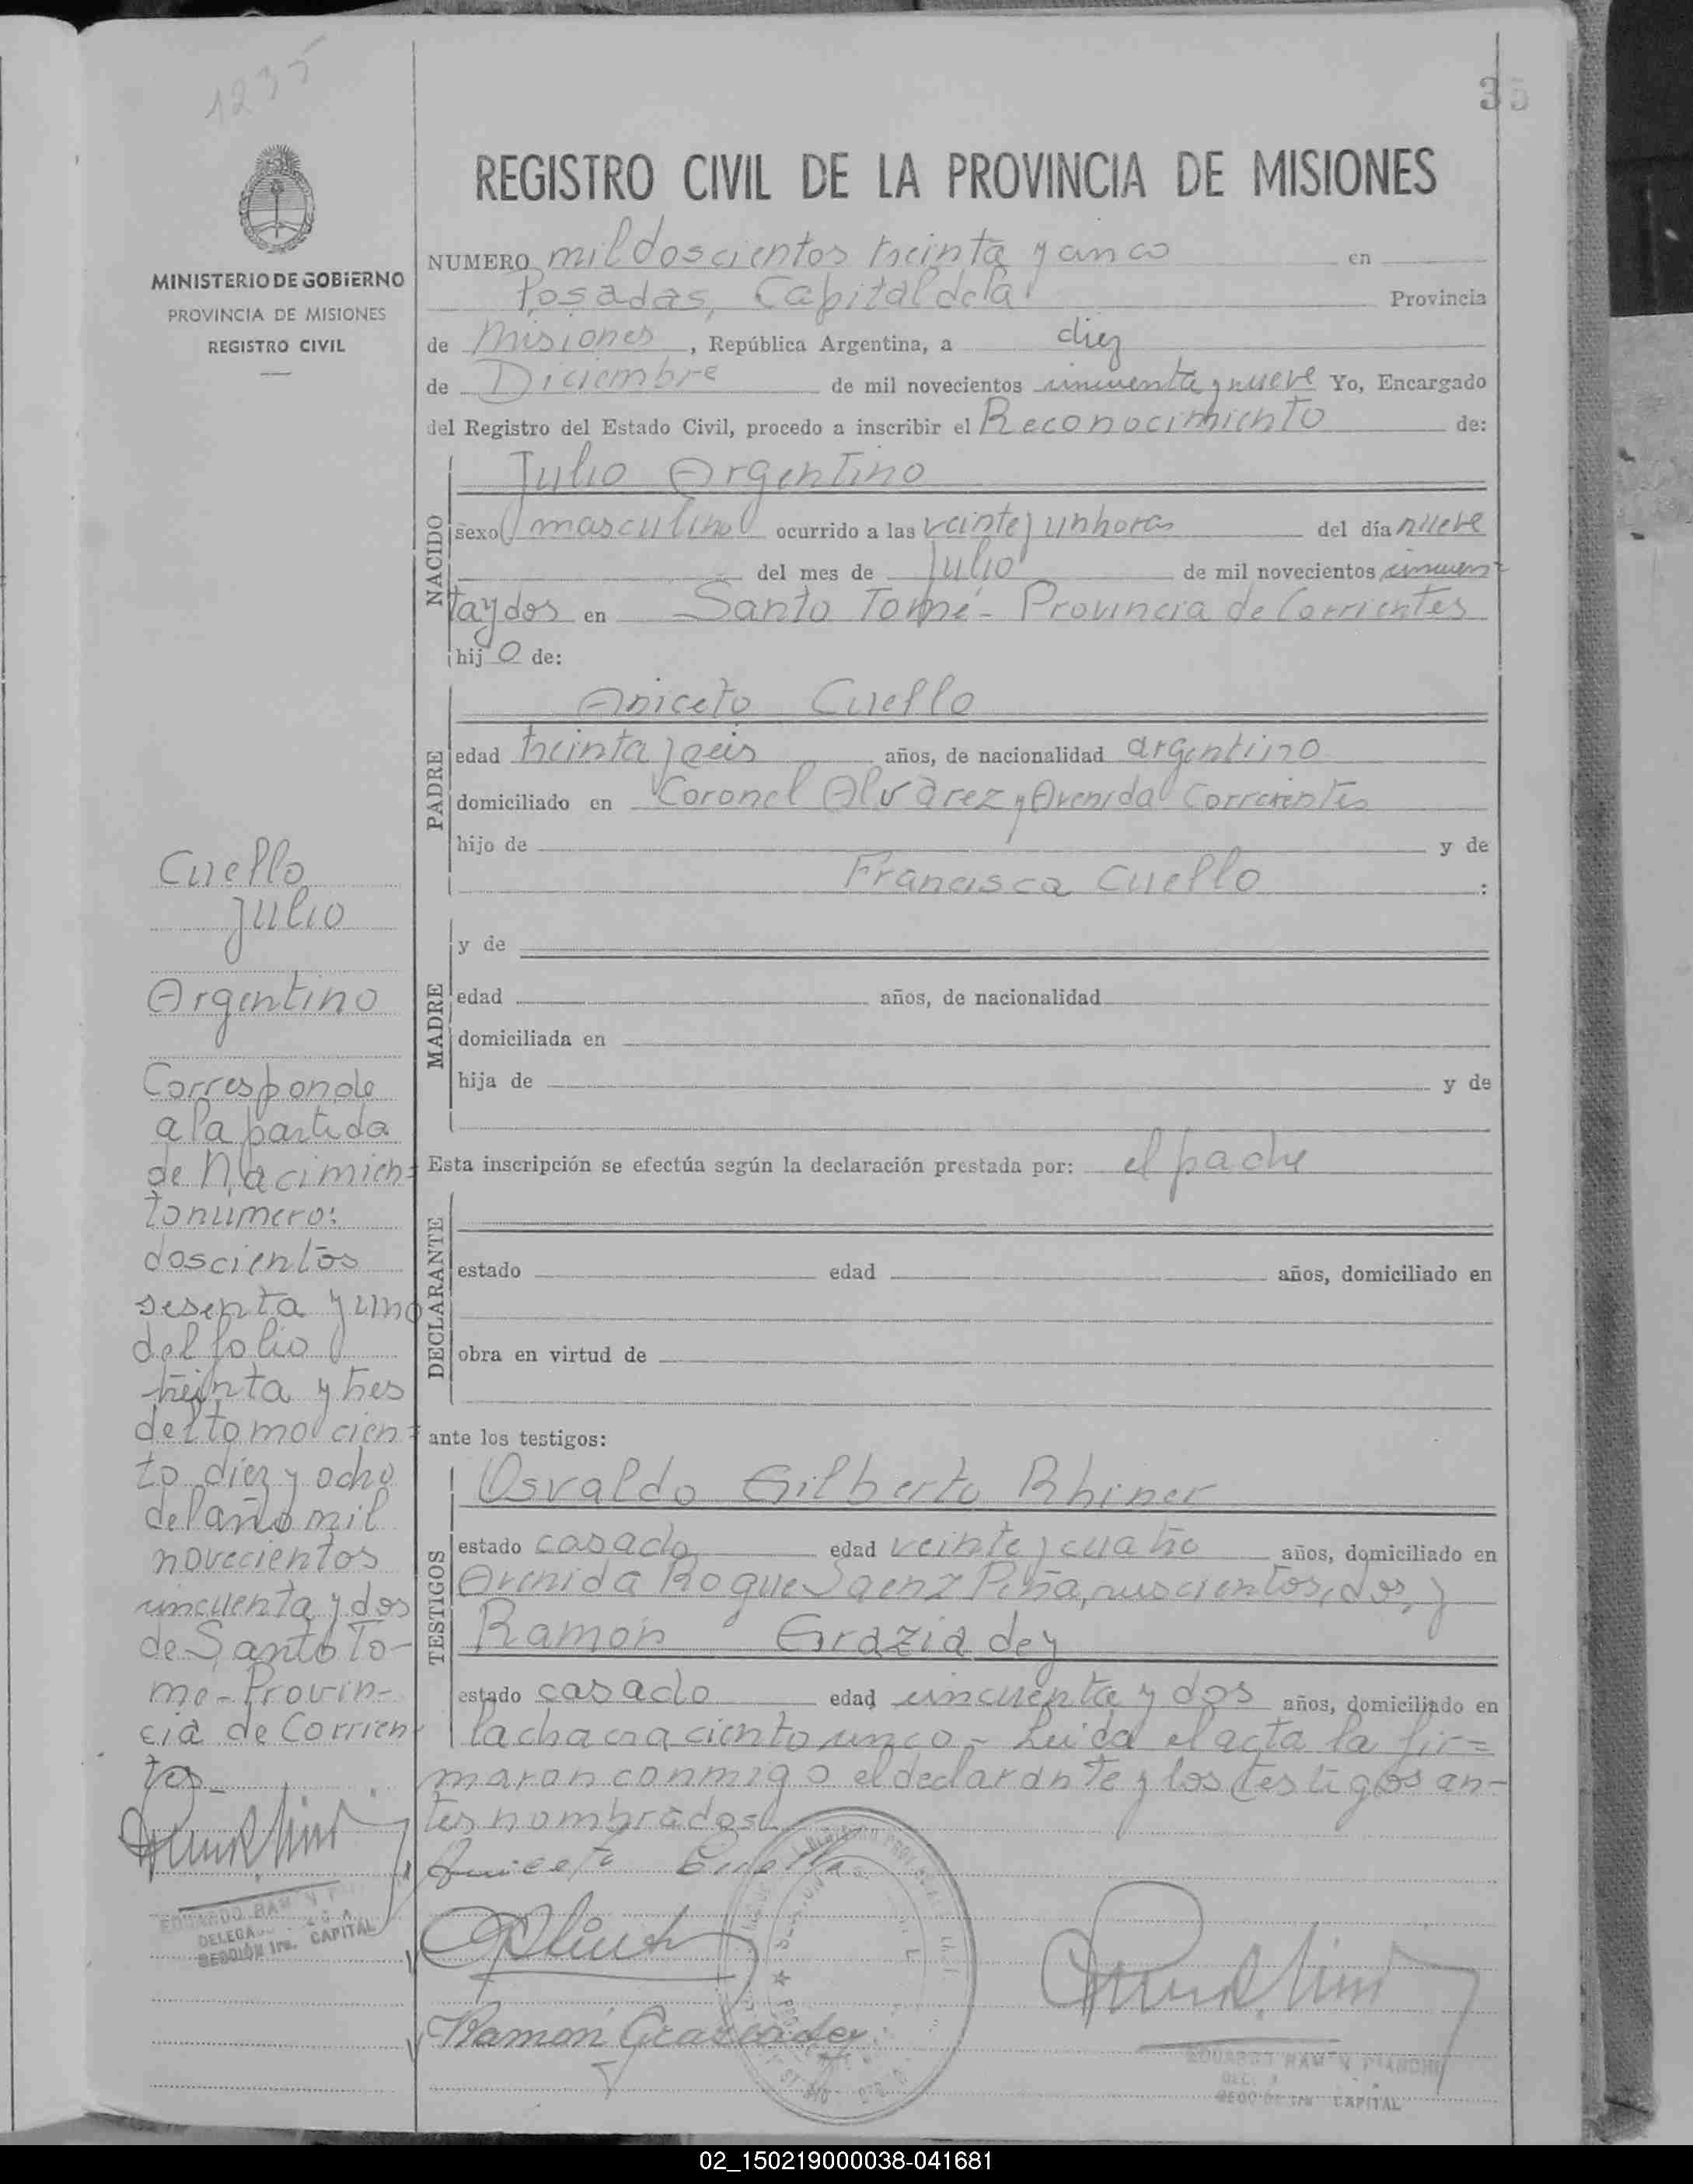 1235
35
MINISTERIO DE GOBIERNO
PROVINCIA DE MISIONES
REGISTRO CIVIL
Cuello
Julio
Argentino
Corresponde
a la partida
de Nacimien=
to numero:
doscientos
sesenta y uno
del folio
treinta y tres
del tomo cien=
to diez y ocho
del año mil
novecientos
cincuenta y dos
de Santo To-
me - Provin-
cia de Corrien
tes
EDUARDO RAMON
SECCIÓN 1ra. CAPITAL
REGISTRO CIVIL DE LA PROVINCIA DE MISIONES
NUMERO mil doscientos treinta y cinco en
Posadas, Capital de la Provincia
de Misiones, República Argentina, a diez
de Diciembre de mil novecientos cincuenta y nueve Yo, Encargado
del Registro del Estado Civil, procedo a inscribir el Reconocimiento de:
NACIDO
Julio Argentino
sexo masculino ocurrido a las veinte y un horas del día nueve
del mes de Julio de mil novecientos cincuen=
ta y dos en Santo Tomé - Provincia de Corrientes
hijo de:
PADRE
Aniceto Cuello
edad treinta y seis años, de nacionalidad argentino
domiciliado en Coronel Alvarez y Avenida Corrientes
hijo de y de
Francisca Cuello :
MADRE
y de
edad años, de nacionalidad
domiciliada en
hija de y de
Esta inscripción se efectúa según la declaración prestada por: el padre
DECLARANTE
estado edad años, domiciliado en
obra en virtud de
ante los testigos:
TESTIGOS
Osvaldo Gilberto Rhiner
estado casado edad veinte y cuatro años, domiciliado en
Avenida Roque Saenz Peña, dos, y
Ramón Graziadey
estado casado edad cincuenta y dos años, domiciliado en
la chacra ciento cinco - Leida el acta la fir=
maron conmigo el declarante y los testigos an-
tes nombrados
Aniceto Cuello
Ramón Graziadey
EDUARDO RAMON
CAPITAL
02_150219000038-041681